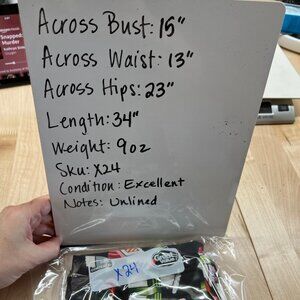 Snapped:
Murder
Across Bust: 15"
Across Waist: 13"
Across Hips: 23"
Length: 34"
Weight: 9oz
Sku: X24
Condition: Excellent
Notes: Unlined
X24